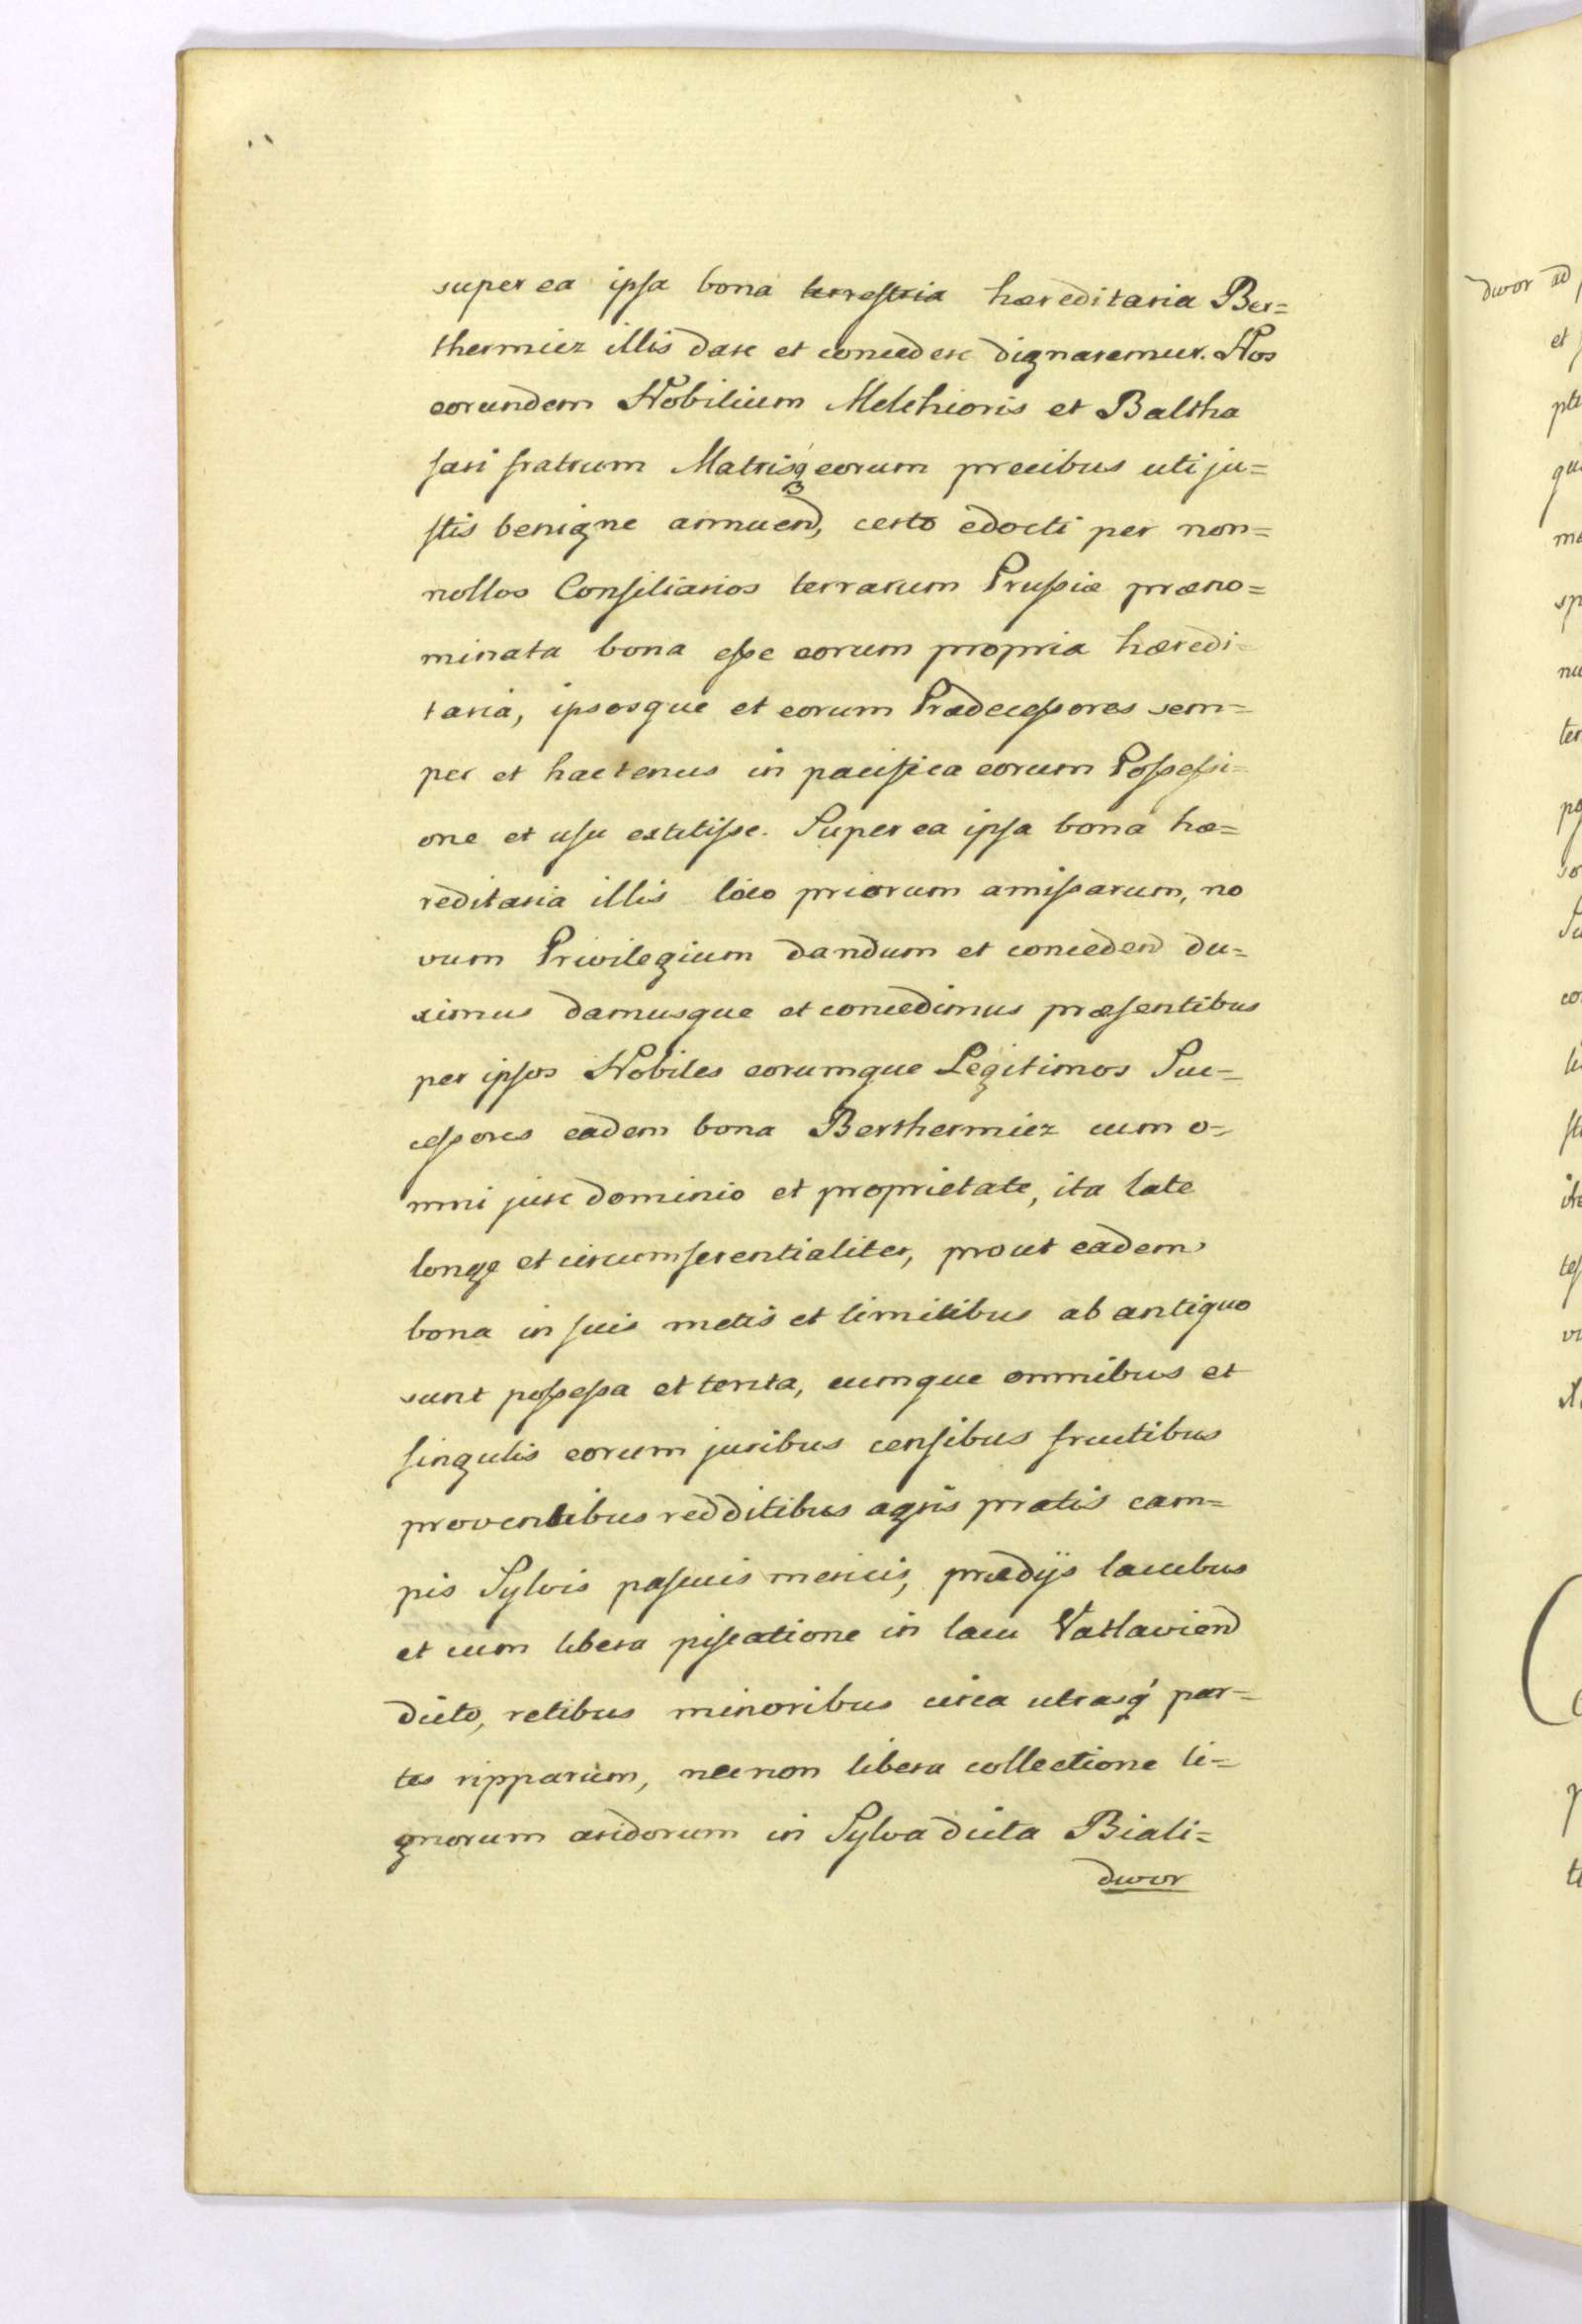 super ea ipsa bona terrestria hæreditaria Ber=
thermicz illis dare et concedere dignaremur. Nos
eorundem Nobilium Melchioris et Baltha
sari fratrum Matrisq́ eorum precibus uti ju=
stis benigne annuend, certo edocti per non=
nollos Consiliarios terrarum Prussiæ præno=
minata bona esse eorum propria hæredi=
taria, ipsosque et eorum Prædecessores sem=
per et hactenus in pacifica eorum Possessi=
one et usu extitisse. Super ea ipsa bona hæ=
reditaria illis loco priorum amissarum, no
vum Privilegium dandum et conceden̄ du=
ximus damusque et concedimus præsentibus
per ipsos Nobiles eorumque Legitimos Suc=
cessores eadem bona Berthermicz cum o=
mni jure dominio et proprietate, ita late
longe et circumferentialiter, prout eadem
bona in suis metis et limitibus ab antiquo
sunt possessa et tenta, cumque omnibus et
singulis eorum juribus censibus fructibus
proventibus redditibus agris pratis cam=
pis Sylvis pascuis mericis, prædijs lacubus
et cum libera piscatione in lacu
dicto, retibus minoribus circa utrasq́ par=
tes ripparum, necnon libera collectione li=
gnorum aridorum in Sylva dicta Biali=
dwor
dwor ad
et